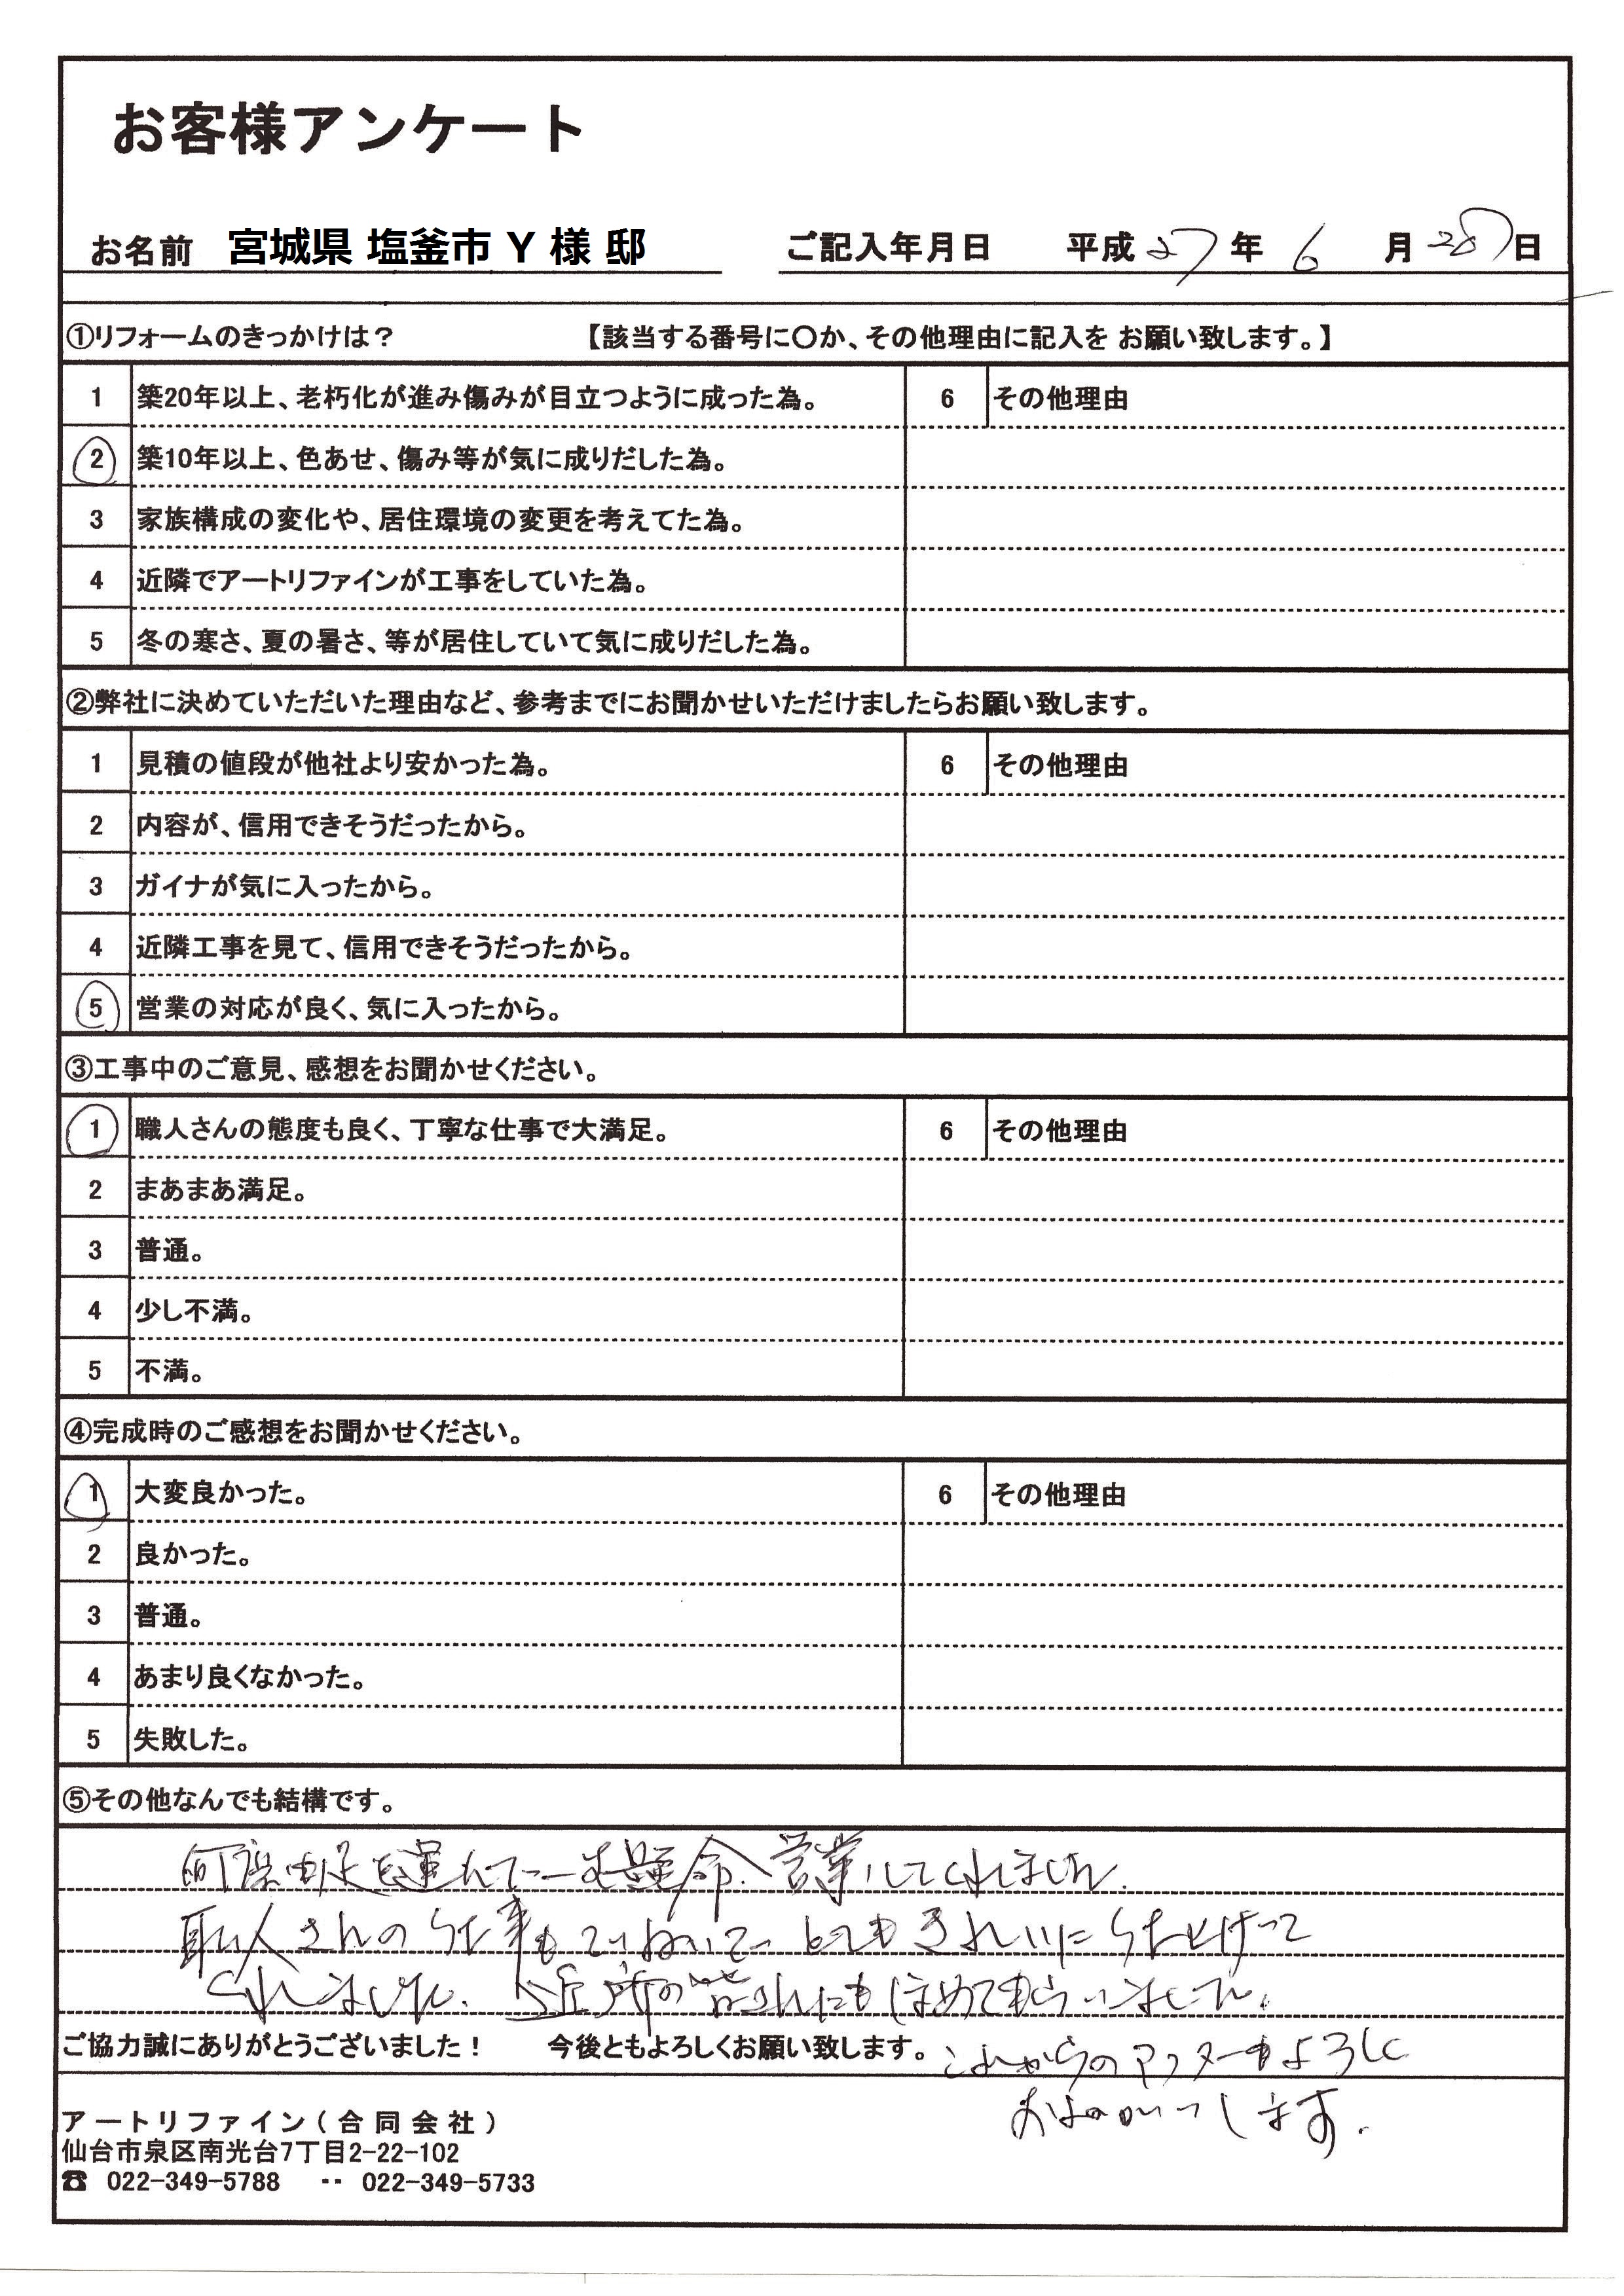 お客様アンケート
お名前 宮城県 塩釜市 Y 様 邸 ご記入年月日 平成 27 年 6 月 28 日
①リフォームのきっかけは？ 【該当する番号に〇か、その他理由に記入を お願い致します。】
1 築20年以上、老朽化が進み傷みが目立つように成った為。 6 その他理由
2 築10年以上、色あせ、傷み等が気に成りだした為。
3 家族構成の変化や、居住環境の変更を考えてた為。
4 近隣でアートリファインが工事をしていた為。
5 冬の寒さ、夏の暑さ、等が居住していて気に成りだした為。
②弊社に決めていただいた理由など、参考までにお聞かせいただけましたらお願い致します。
1 見積の値段が他社より安かった為。 6 その他理由
2 内容が、信用できそうだったから。
3 ガイナが気に入ったから。
4 近隣工事を見て、信用できそうだったから。
5 営業の対応が良く、気に入ったから。
③工事中のご意見、感想をお聞かせください。
1 職人さんの態度も良く、丁寧な仕事で大満足。 6 その他理由
2 まあまあ満足。
3 普通。
4 少し不満。
5 不満。
④完成時のご感想をお聞かせください。
1 大変良かった。 6 その他理由
2 良かった。
3 普通。
4 あまり良くなかった。
5 失敗した。
⑤その他なんでも結構です。
何度も足を運んで一生懸命、営業してくれました。
職人さんの仕事もていねいで とてもきれいに仕上げって
くれました。ご近所の皆さんにもほめてもらいました。
ご協力誠にありがとうございました！ 今後ともよろしくお願い致します。
これからのアフターもよろしく
おねがいします。
アートリファイン（合同会社）
仙台市泉区南光台7丁目2-22-102
☎ 022-349-5788 ・・ 022-349-5733